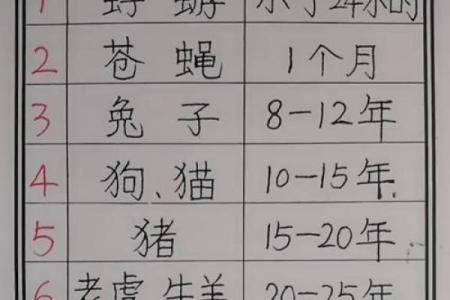 1 蜉蝣 小于24小时
2 苍蝇 1个月
3 兔子 8-12年
4 狗、猫 10-15年
5 猪 15-20年
6 老虎 牛羊 20-25年